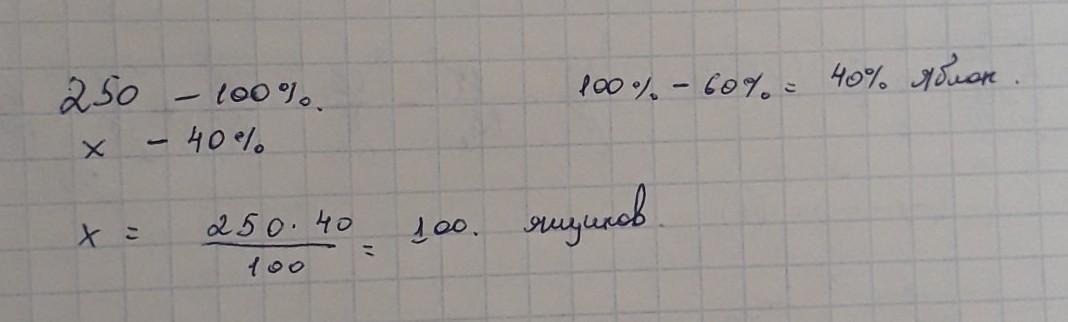 250 - 100%.
100% - 60% = 40% яблок.
x - 40%
x = 250 · 40 / 100 = 100. ящиков.